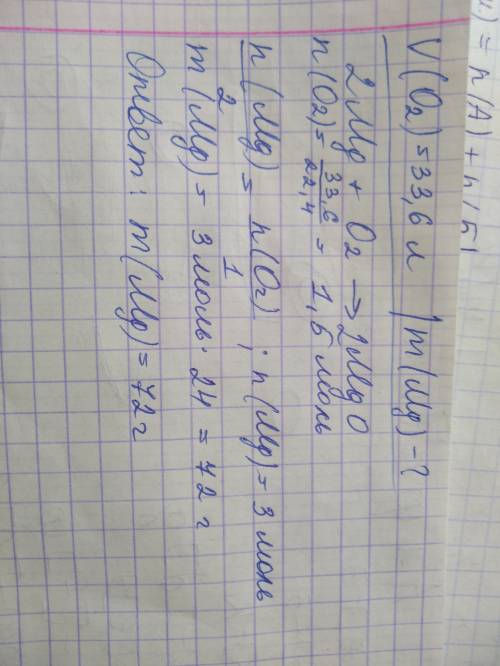 ) = n(A) + n(Б)
V(O₂) = 33,6 л | m(Mg) - ?
2Mg + O₂ → 2MgO
n(O₂) = 33,6 / 22,4 = 1,5 моль
n(Mg) / 2 = n(O₂) / 1 ; n(Mg) = 3 моль
m(Mg) = 3 моль · 24 = 72 г
Ответ: m(Mg) = 72 г